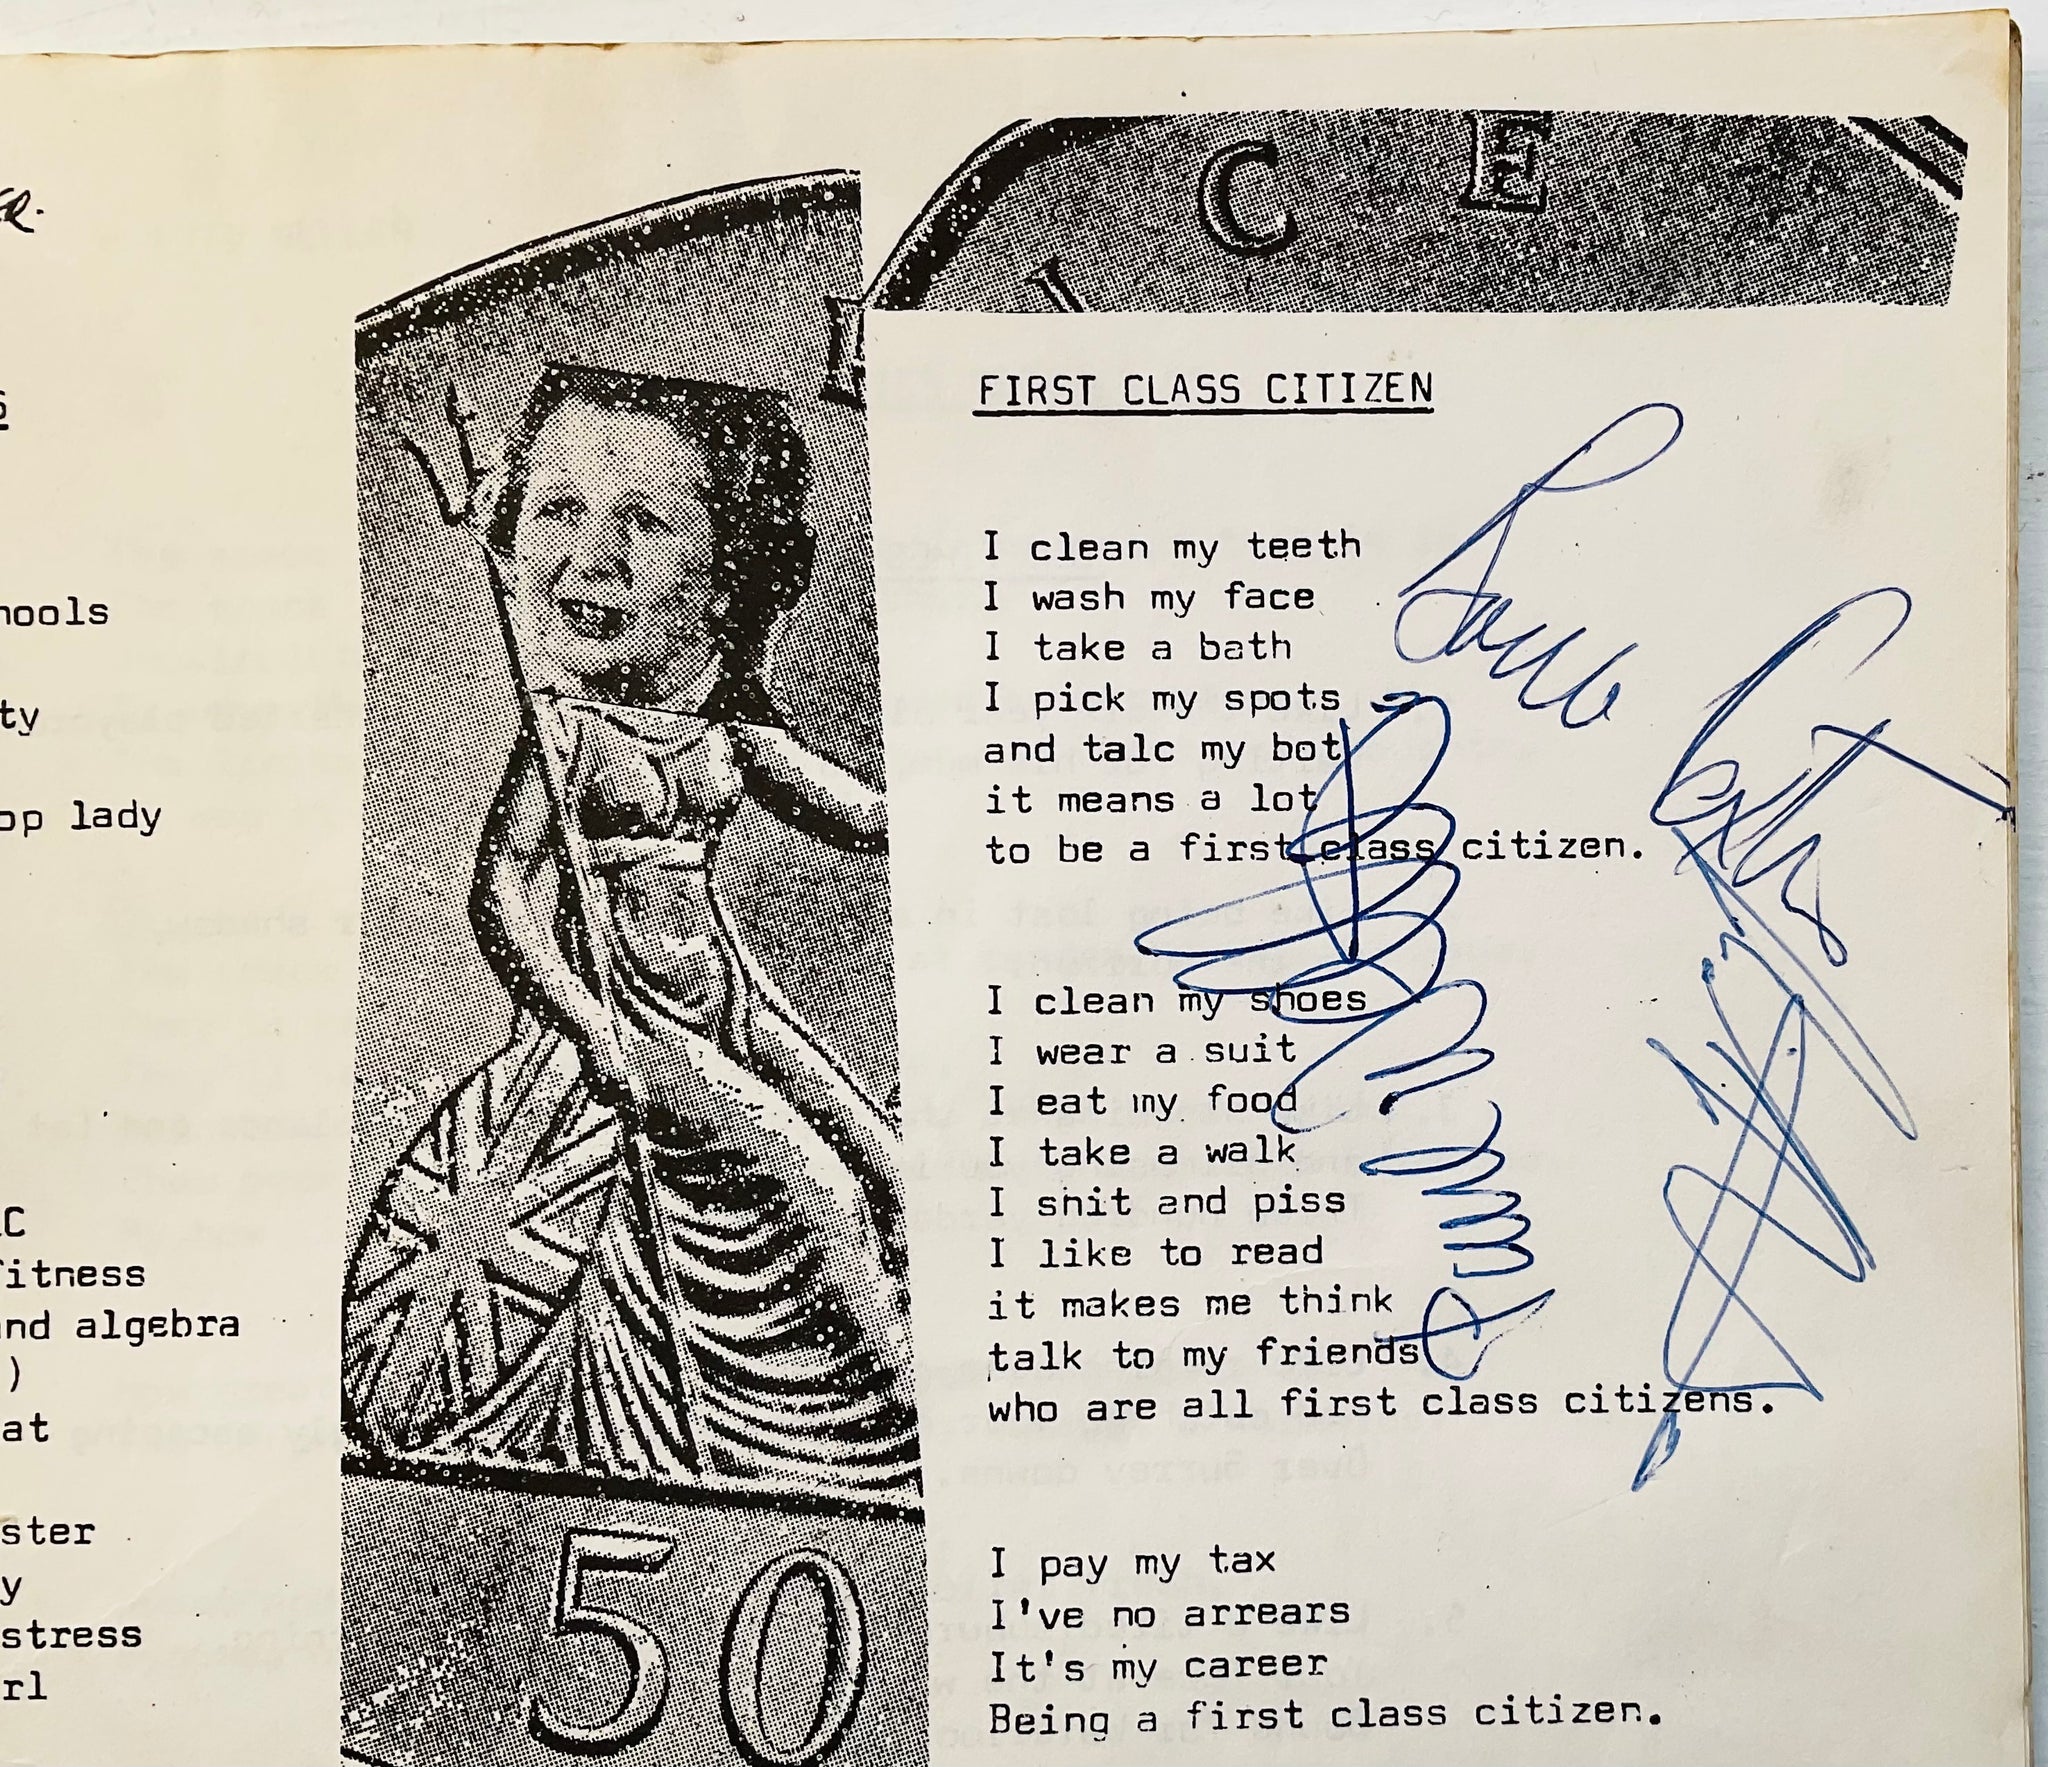 ER.
S
hools
ty
op lady
LC
fitness
and algebra
)
at
ster
y
stress
rl
I C E
50
FIRST CLASS CITIZEN
I clean my teeth
I wash my face
I take a bath
I pick my spots
and talc my bot
it means a lot
to be a first class citizen.
I clean my shoes
I wear a suit
I eat my food
I take a walk
I shit and piss
I like to read
it makes me think
talk to my friends
who are all first class citizens.
I pay my tax
I've no arrears
It's my career
Being a first class citizen.
Love